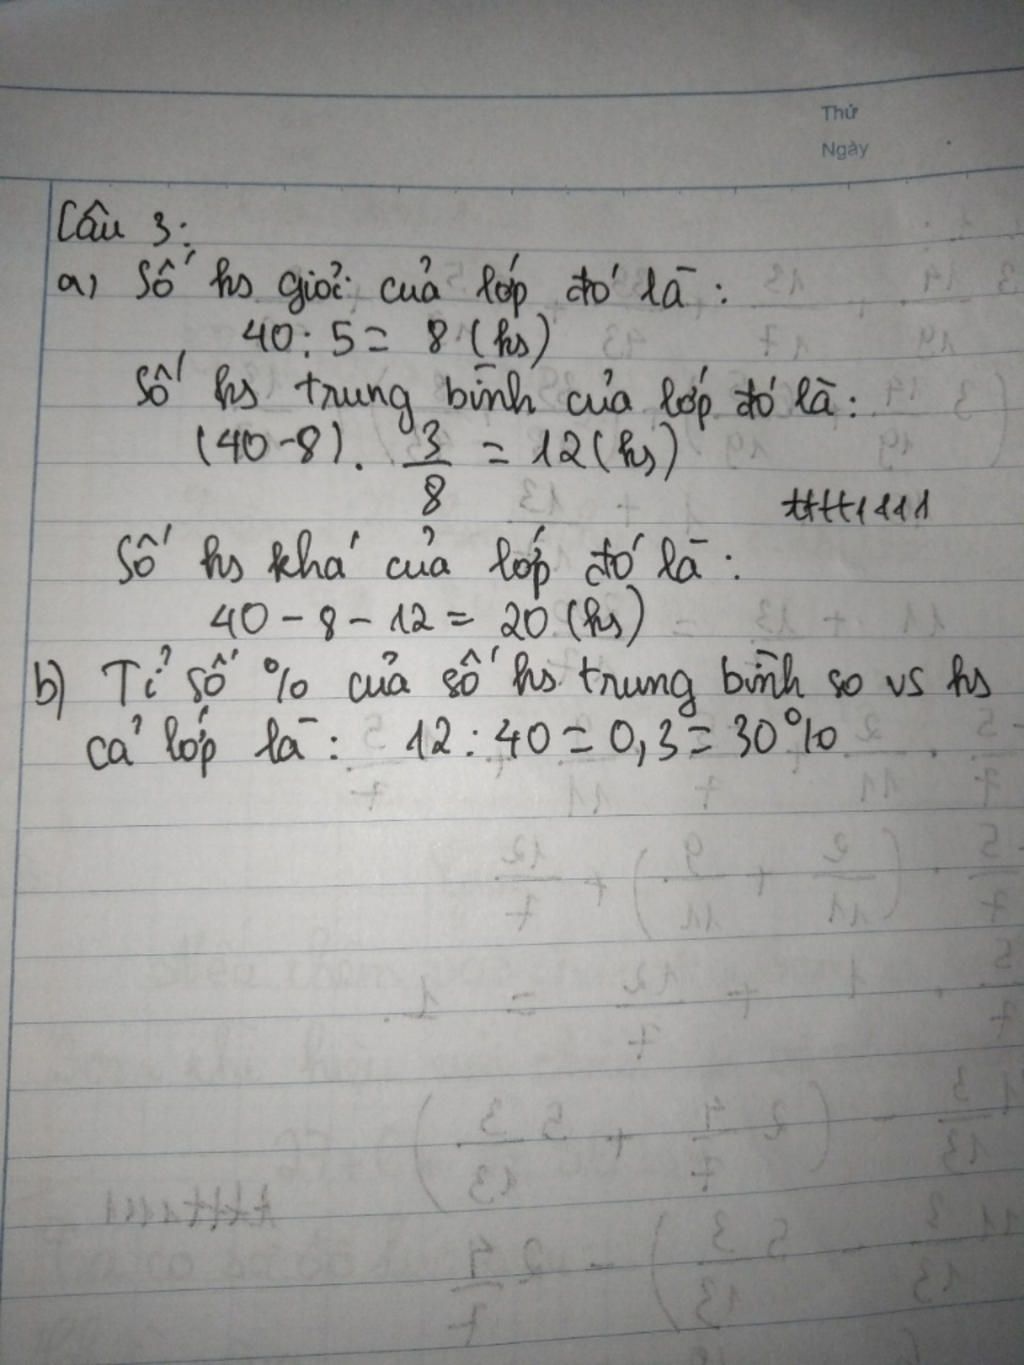 Thứ
Ngày
Câu 3:
a) Số hs giỏi của lớp đó là:
40 : 5 = 8 (hs)
Số hs trung bình của lớp đó là:
(40-8) . 3/8 = 12 (hs)
tttt1111
Số hs khá của lớp đó là:
40 - 8 - 12 = 20 (hs)
b) Tỉ số % của số hs trung bình so vs hs
cả lớp là: 12 : 40 = 0,3 = 30%